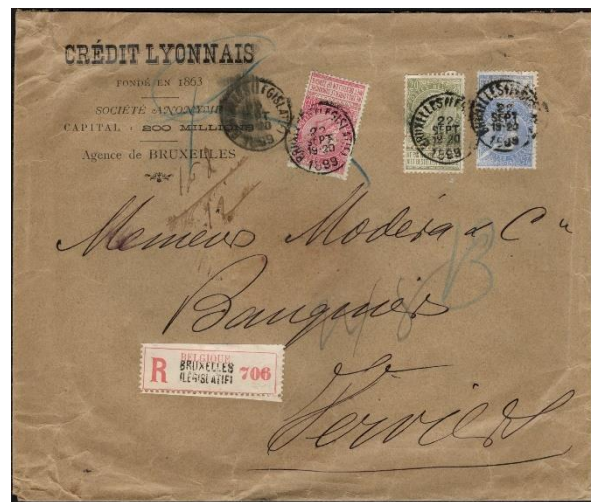 CRÉDIT LYONNAIS
FONDÉ EN 1863
SOCIÉTÉ ANONYME
CAPITAL : 200 MILLIONS
Agence de BRUXELLES
BRUXELLES (LEGISLATIF)
22
SEPT
19-20
1899
BRUXELLES (LEGISLATIF)
22
SEPT
19-20
1899
BRUXELLES (LEGISLATIF)
22
SEPT
19-20
1899
SEPT
Messieurs Modera & Cie
Banquiers
Verviers
R
BELGIQUE
BRUXELLES
(LEGISLATIF)
706